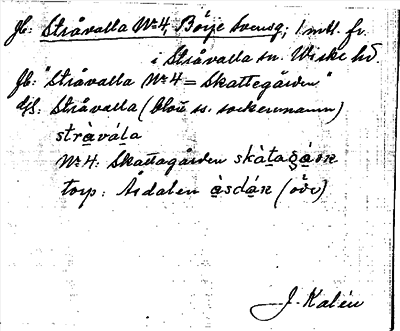 Jb: Stråvalla No 4, Börje Svensg, 1 mtl. fr.
i Stråvalla sn. Viske hd.
Jb: "Stråvalla No 4 = Skattegården"
Stråvalla (även ss. sockennamn)
stràvála
No 4: Skattagården skàtagàɳ
torp: Åsdalen àsdáɳ (öv)
J. Kalén